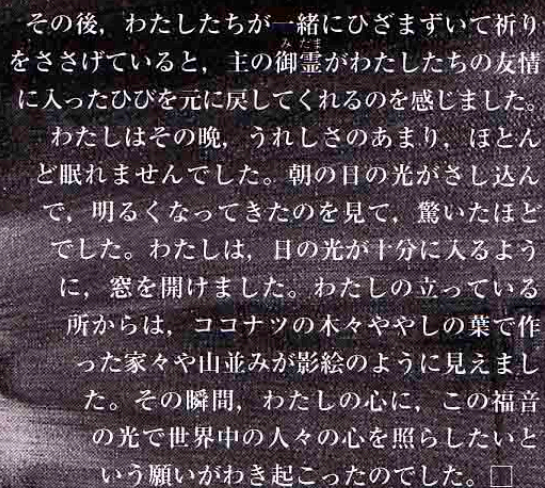 その後，わたしたちが一緒にひざまずいて祈り
をささげていると，主の御霊がわたしたちの友情
に入ったひびを元に戻してくれるのを感じました。
わたしはその晩，うれしさのあまり，ほとん
ど眠れませんでした。朝の日の光がさし込ん
で，明るくなってきたのを見て，驚いたほど
でした。わたしは，日の光が十分に入るよう
に，窓を開けました。わたしの立っている
所からは，ココナツの木々ややしの葉で作
った家々や山並みが影絵のように見えまし
た。その瞬間，わたしの心に，この福音
の光で世界中の人々の心を照らしたいと
いう願いがわき起こったのでした。□